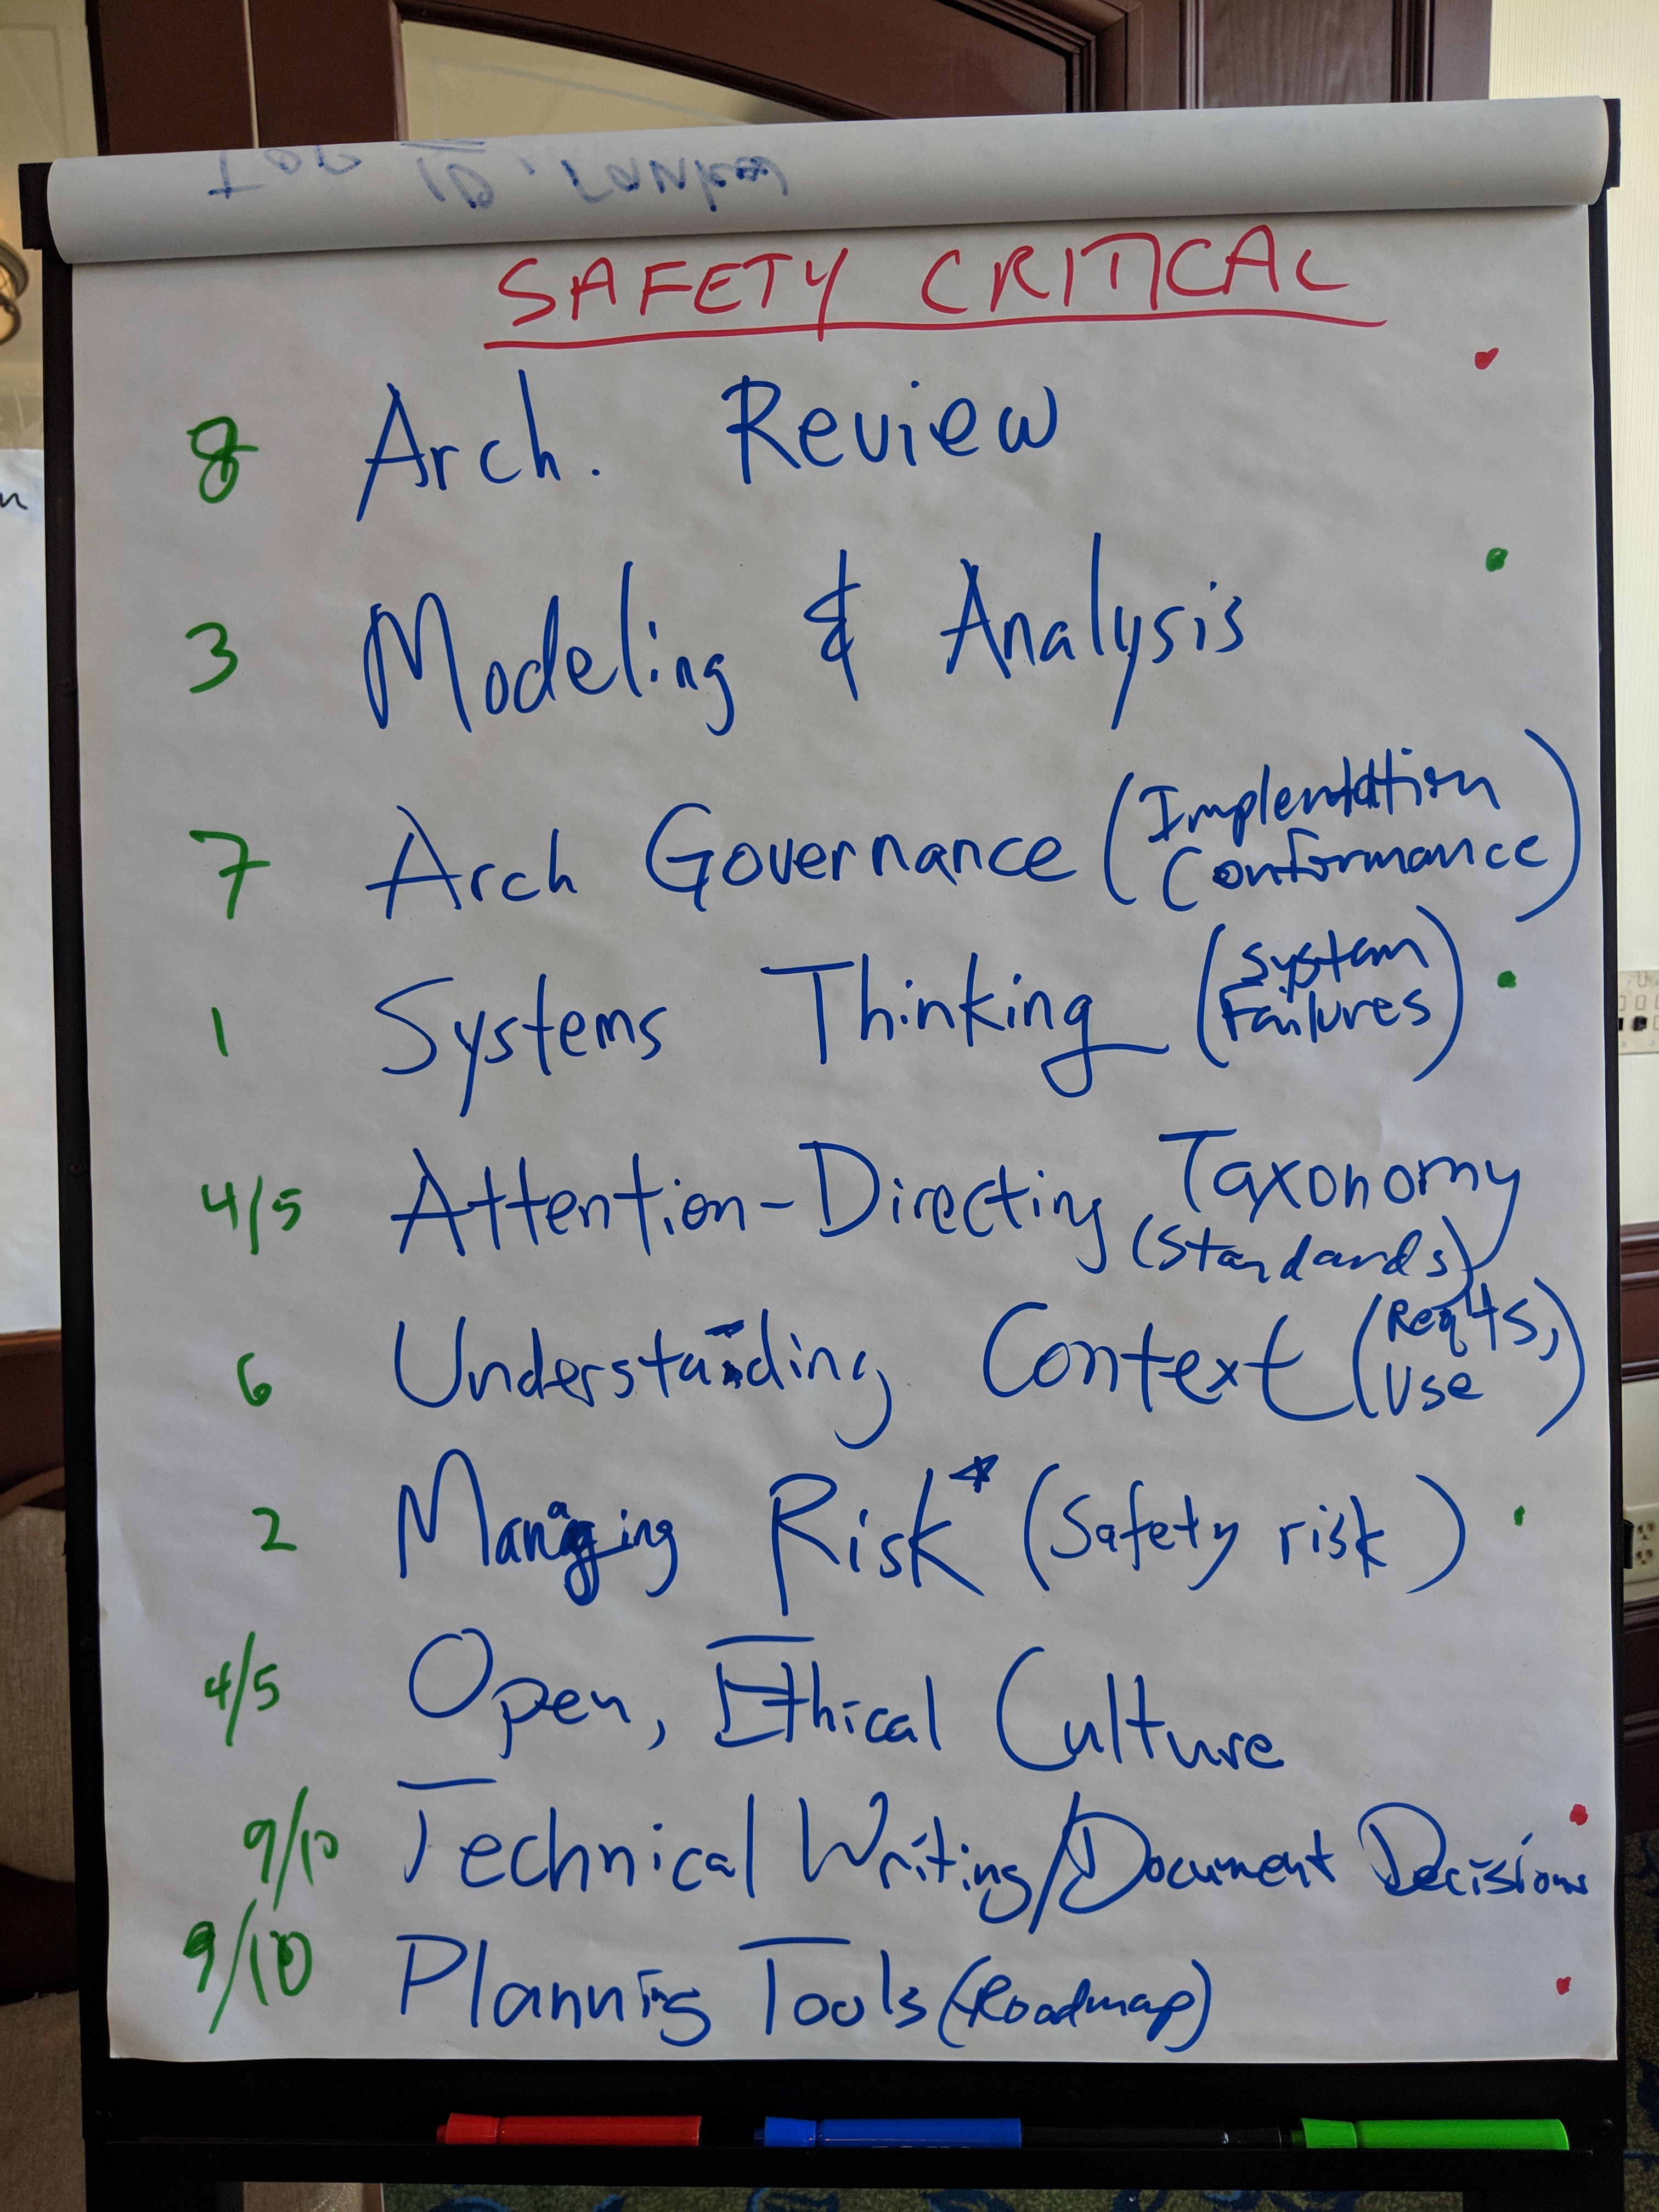 SAFETY CRITICAL
8 Arch. Review
3 Modeling & Analysis
7 Arch Governance (Implentation
Conformance)
1 Systems Thinking (System
Failures)
4/5 Attention-Directing Taxonomy
(Standards)
6 Understanding Context (Req'ts,
Use)
2 Managing Risk* (Safety risk)
4/5 Open, Ethical Culture
9/10 Technical Writing/Document Decisions
9/10 Planning Tools (Roadmap)